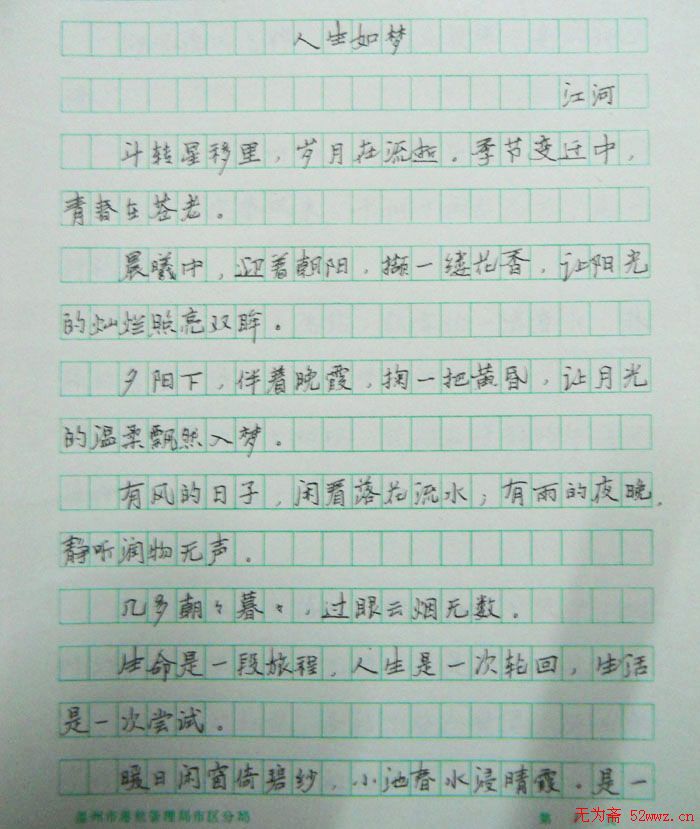 人生如梦
江河
斗转星移里，岁月在流逝。季节变迁中，
青春在苍老。
晨曦中，迎着朝阳，撷一缕花香，让阳光
的灿烂照亮双眸。
夕阳下，伴着晚霞，掬一把黄昏，让月光
的温柔飘然入梦。
有风的日子，闲看落花流水；有雨的夜晚，
静听润物无声。
几多朝々暮々，过眼云烟无数。
生命是一段旅程，人生是一次轮回，生活
是一次尝试。
暖日闲窗倚碧纱，小池春水浸晴霞。是一
温州市港航管理局市区分局
第
无为斋 52wwz.cn